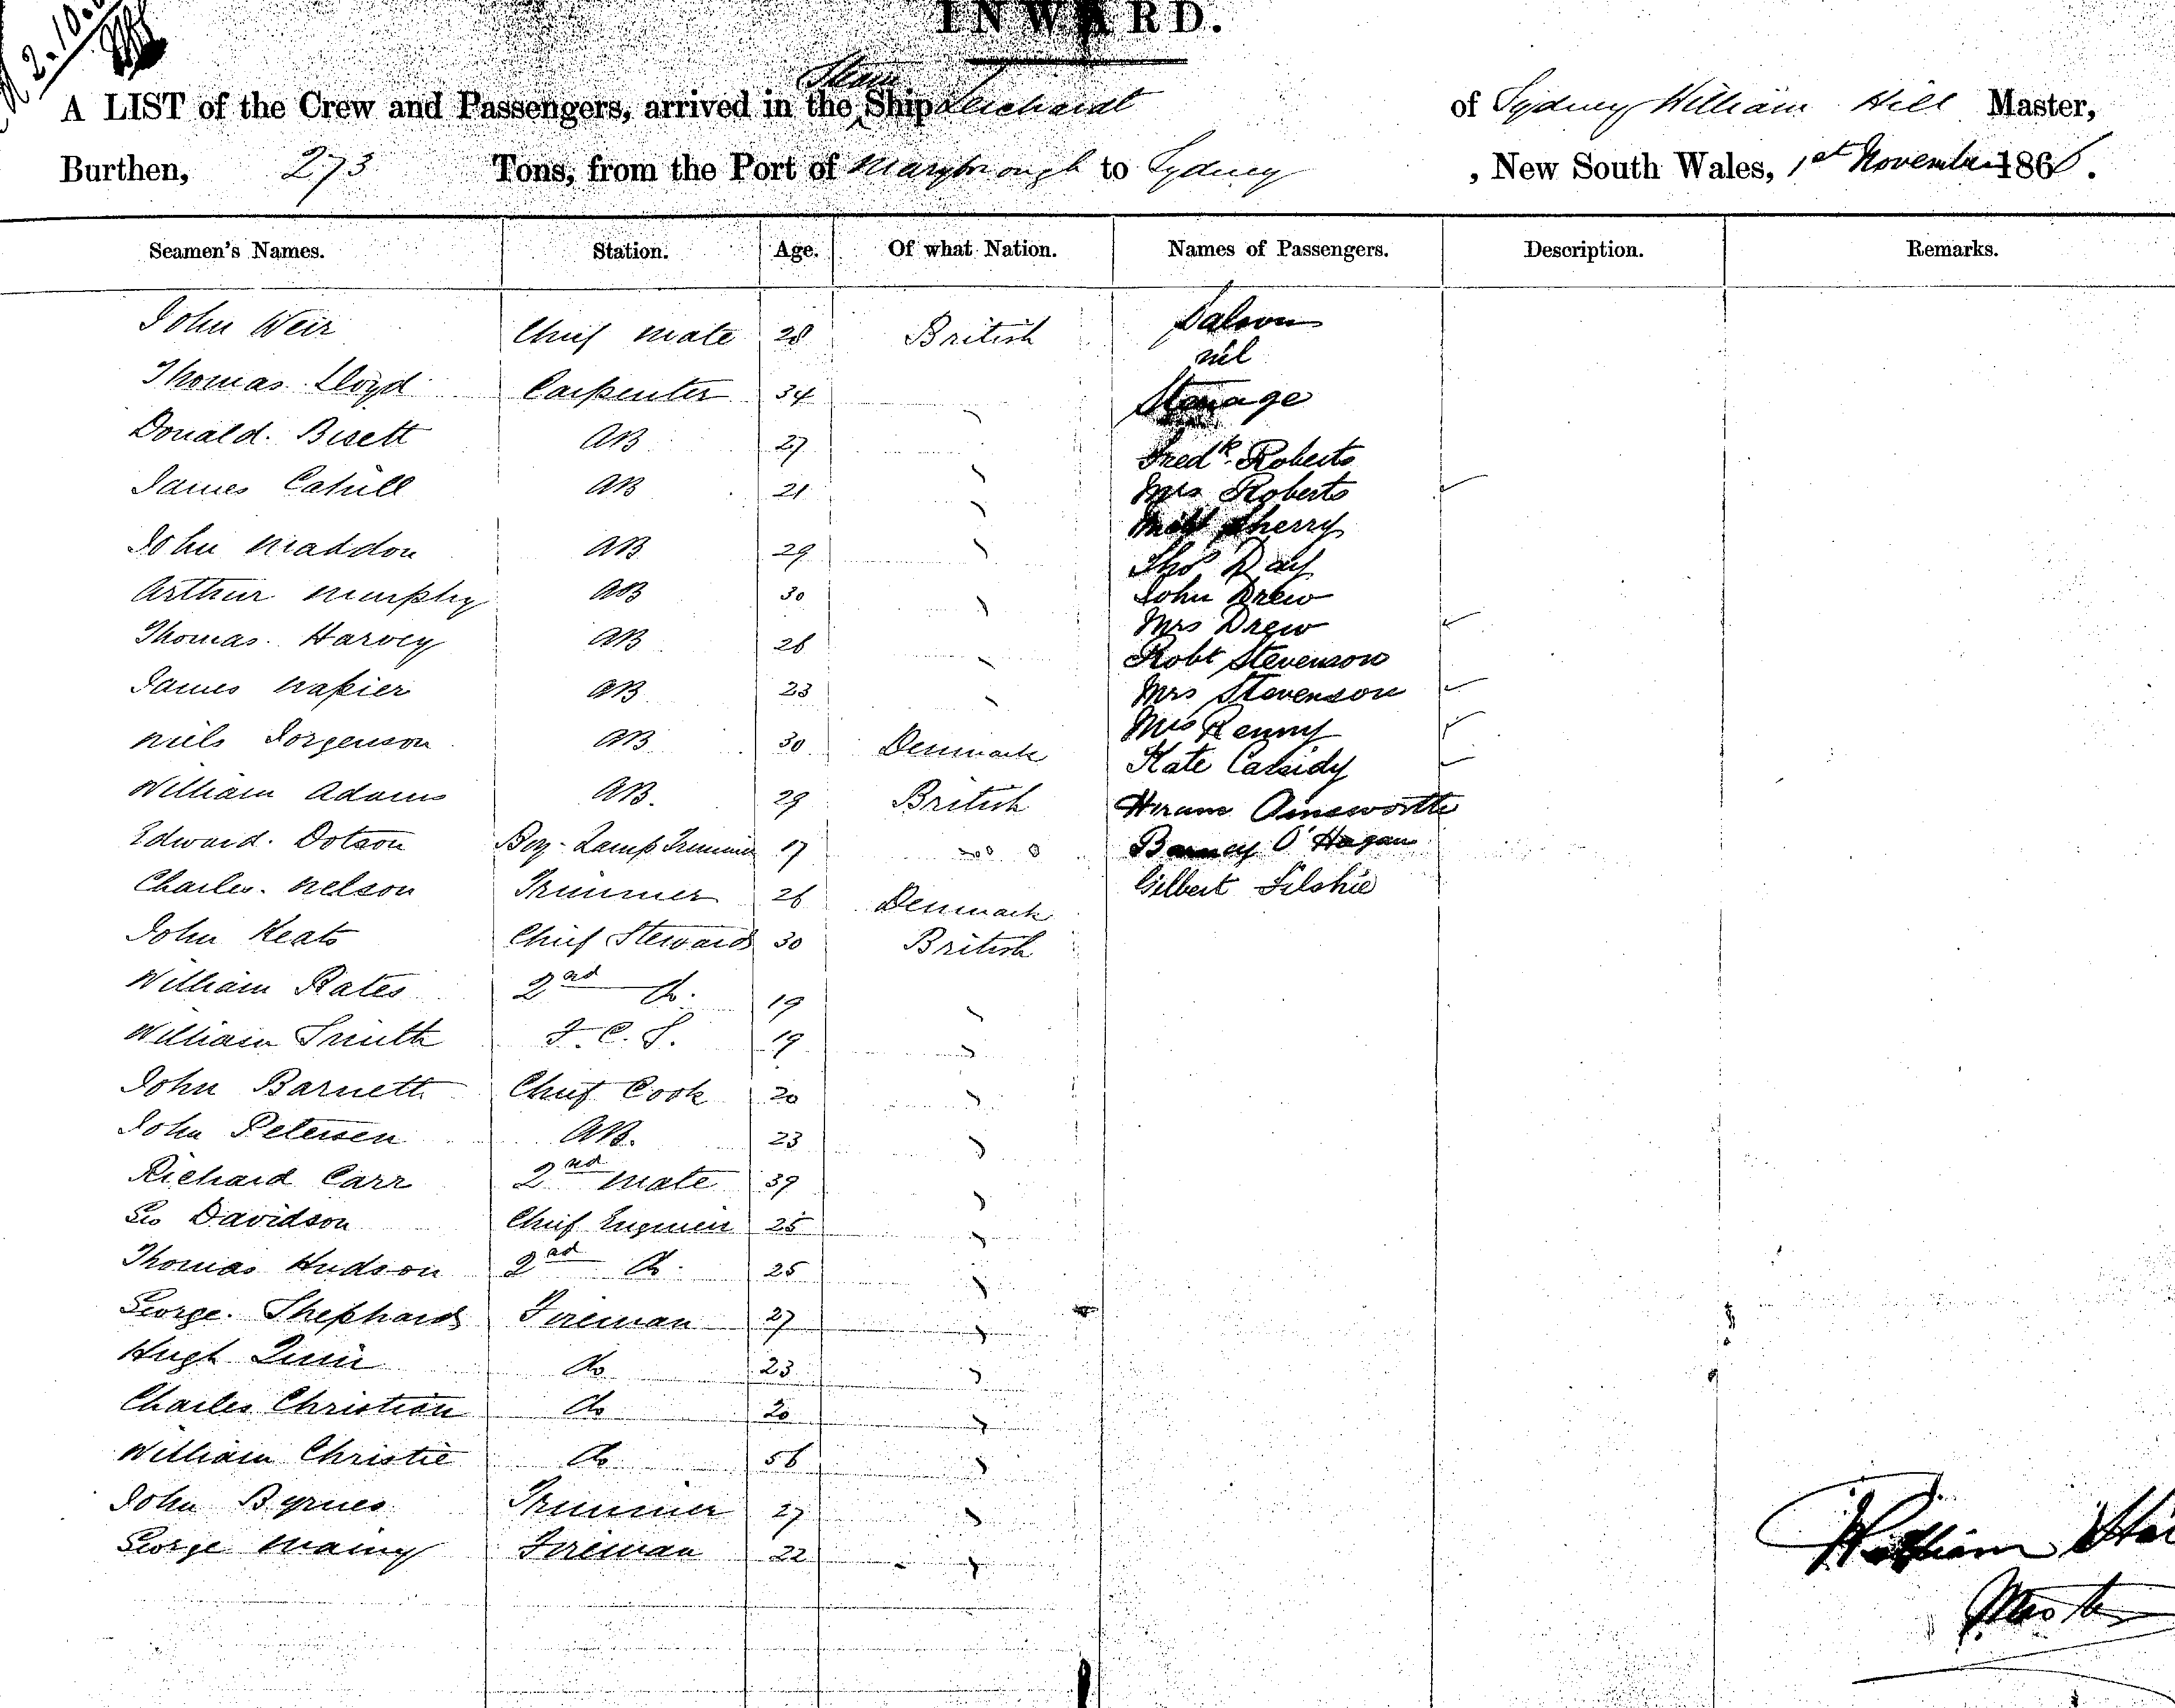 2.10.
INWARD.
Steam
A LIST of the Crew and Passengers, arrived in the Ship Leichardt of Sydney William Hill Master,
Burthen, 273 Tons, from the Port of Maryborough to Sydney , New South Wales, 1st November 1866.
Seamen's Names. Station. Age. Of what Nation. Names of Passengers. Description. Remarks.
John Weir Chief Mate 28 British Saloon
nil
Thomas Lloyd Carpenter 34 " Steerage
Donald. Bisett AB 27 " Fredk. Roberts
James Cahill AB 21 " Mrs Roberts ✓
Sherry
John Maddon AB 29 " Thos Day
Arthur Murphy AB 30 " John Drew
Thomas. Harvey AB 26 " Mrs Drew ✓
Robt Stevenson
James Napier AB 23 " Mrs Stevenson ✓
Niels Jorgenson AB 30 Denmark Mrs Renny ✓
Kate Cassidy ✓
William Adams AB. 29 British Hiram Ainsworth
Edward. Dotson Boy-Lamp Trimmer 17 " Barney O'Hagan
Charles. Nelson Trimmer 26 Denmark Gilbert Filshie
John Keats Chief Steward 30 British
William Bates 2nd do. 19 "
William Smith F.C.S. 19 "
John Barnett Chief Cook 20 "
John Petersen AB. 23 "
Richard Carr 2nd Mate 39 "
Geo Davidson Chief Engineer 25 "
Thomas Hudson 2nd do. 25 "
George. Shephard Fireman 27 "
Hugh Quin do 23 "
Charles Christian do 20 "
William Christie do 56 "
John Byrnes Trimmer 27 "
George Mainy Fireman 22 "
William
Master